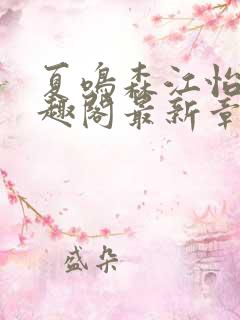 夏鸣森江怡
趣阁最新章
盛朵